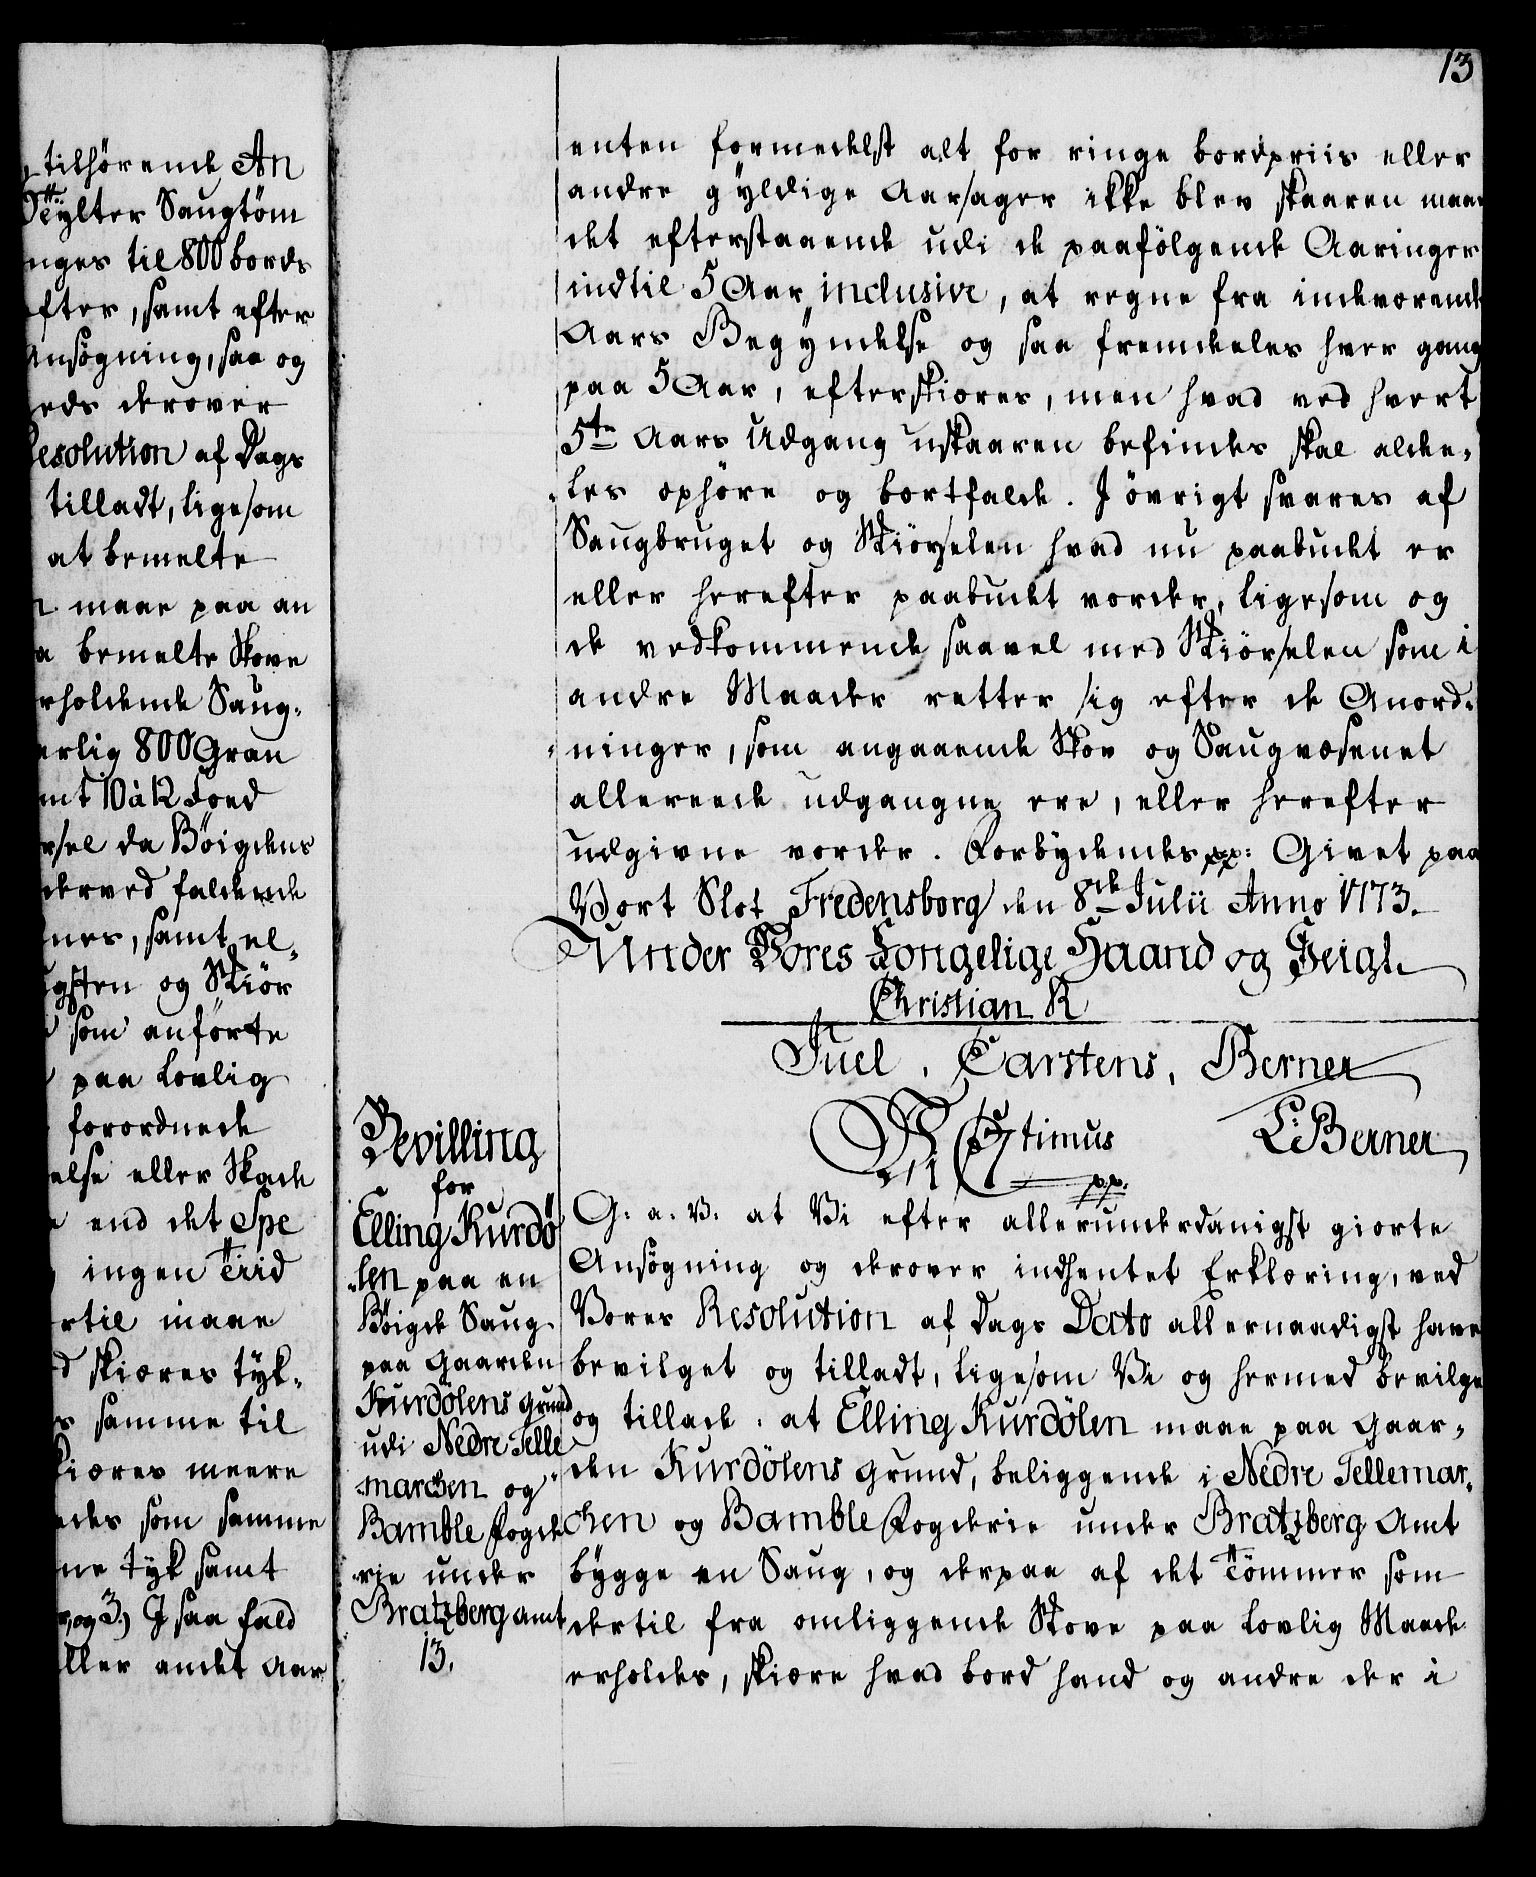 tilhørende An
Tylter Saugtöm
nges til 800 bords
efter, samt efter
Ansøgning, saa og
eds derover
Resolution af Dags
tilladt, ligesom
at bemelte
maae paa an
bemelte Skove
erholdende Saug-
erlig 800 Gran
mt 10 à 12 Foed
rsel da Bøigdens
derved faldende
nes, samt el-
ugsten og Skiör
som anførte
paa Lovlig
forordnede
else eller Skade
end det Spe
ingen Tiid
ertil maae
d skiæres tyk-
s samme til
skiæres meere
edes som samme
ne tyk samt
, og 3.) I saa fald
eller andet Aar
13
enten formedelst alt for ringe bordpriis eller
andre gyldige Aarsager ikke blev skaaren maae
det efterstaaende udi de paafølgende Aaringer
indtil 5 Aar inclusive, at regne fra indeværende
Aars Begyndelse og saa fremdeles hver gang
paa 5 Aar, efterskiæres, men hvad ved hvert
5te Aars Udgang uskaaren befindes skal alde-
-les ophøre og bortfalde. I øvrigt svares af
Saugbruget og Skiörselen hvad nu paabudet er
eller herefter paabudet vorder, ligesom og
de vedkommende saavel med Skiörselen som i
andre Maader retter sig efter de Anord-
-ninger, som angaaende Skov og Saugvæsenet
allereede udgangne ere, eller herefter
udgivne vorder. Forbydendes pp: Givet paa
Vort Slot Fredensborg den 8de Julii Anno 1773.
Under Vores Kongelige Haand og Seigl.
Christian R
Juel, Carstens, Berner
L: Berner
Bevilling
for
Elling Kurdö
-len paa en
Bøigde Saug
paa Gaarden
Kurdölens grund
udi Nedre Telle
-marchen og
Bamble Fogde
-rie under
Bratzberg amt
13.
Vi C 7timus
pp.
G: a: V: at Vi efter allerunderdanigst giorte
Ansøgning og derover indhentet Erklæring, ved
Vores Resolution af Dags Dato allernaadigst have
bevilget og tilladt, ligesom Vi og hermed bevilge
og tillade, at Elling Kurdölen maae paa Gaar-
den Kurdölens grund, beliggende i Nedre Tellemar-
chen og Bamble Fogderie under Bratzberg Amt
bygge en Saug, og derpaa af det Tömmer som
dertil fra omliggende Skove paa Lovlig Maade
erholdes, skiære hvad bord hand og andre der i